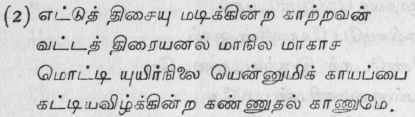 (2) எட்டுத் திசையு மடிக்கின்ற காற்றவன்
வட்டத் திரையனல் மாநில மாகாச
மொட்டி யுயிர்நிலை யென்னுமிக் காயப்பை
கட்டியவிழ்க்கின்ற கண்ணுதல் காணுமே.